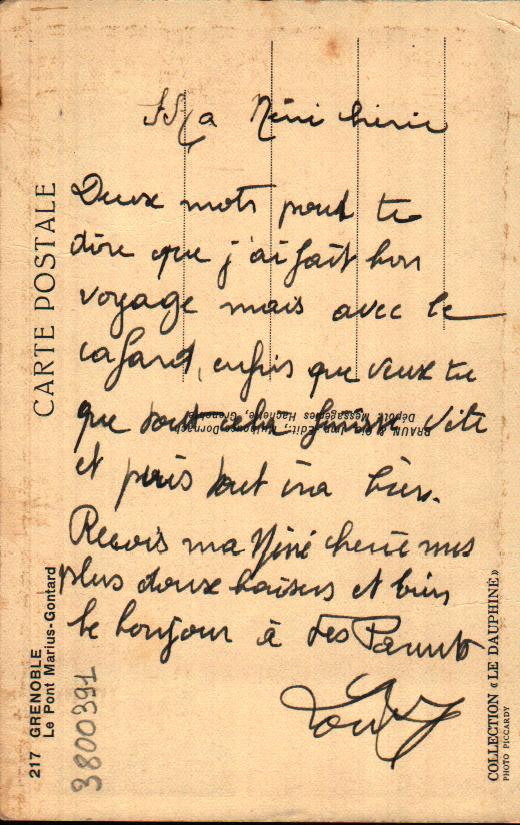 Ma Nini chérie
Deux mots pour te
dire que j'ai fait bon
voyage mais avec le
cafard, enfin que veux tu
que tout cela finisse vite
et puis tout ira bien.
Recois ma Niné cherie mes
plus doux baisers et bien
le bonjour à tes Parents
Louis
CARTE POSTALE
217 GRENOBLE
Le Pont Marius-Gontard
3800391
BRAUN & Cie, Imp.-Édit., Mulhouse-Dornach
Dépôt: Messageries Hachette, Grenoble
COLLECTION « LE DAUPHINÉ »
PHOTO PICCARDY